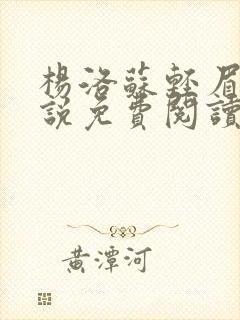 楊洛蘇輕眉
說免費閱讀
黃潭河